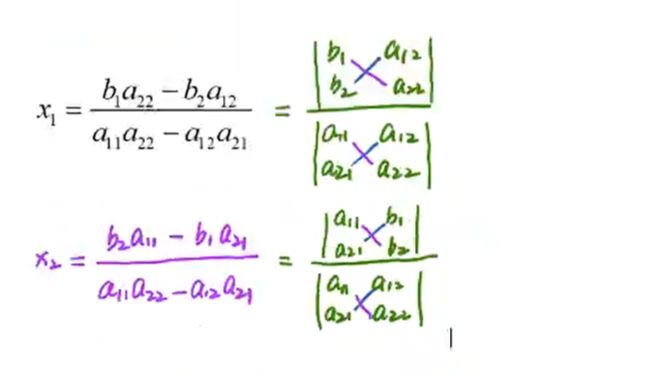 x₁ = (b₁a₂₂ − b₂a₁₂) / (a₁₁a₂₂ − a₁₂a₂₁) = |b₁ a₁₂; b₂ a₂₂| / |a₁₁ a₁₂; a₂₁ a₂₂|
x₂ = (b₂a₁₁ − b₁a₂₁) / (a₁₁a₂₂ − a₁₂a₂₁) = |a₁₁ b₁; a₂₁ b₂| / |a₁₁ a₁₂; a₂₁ a₂₂|